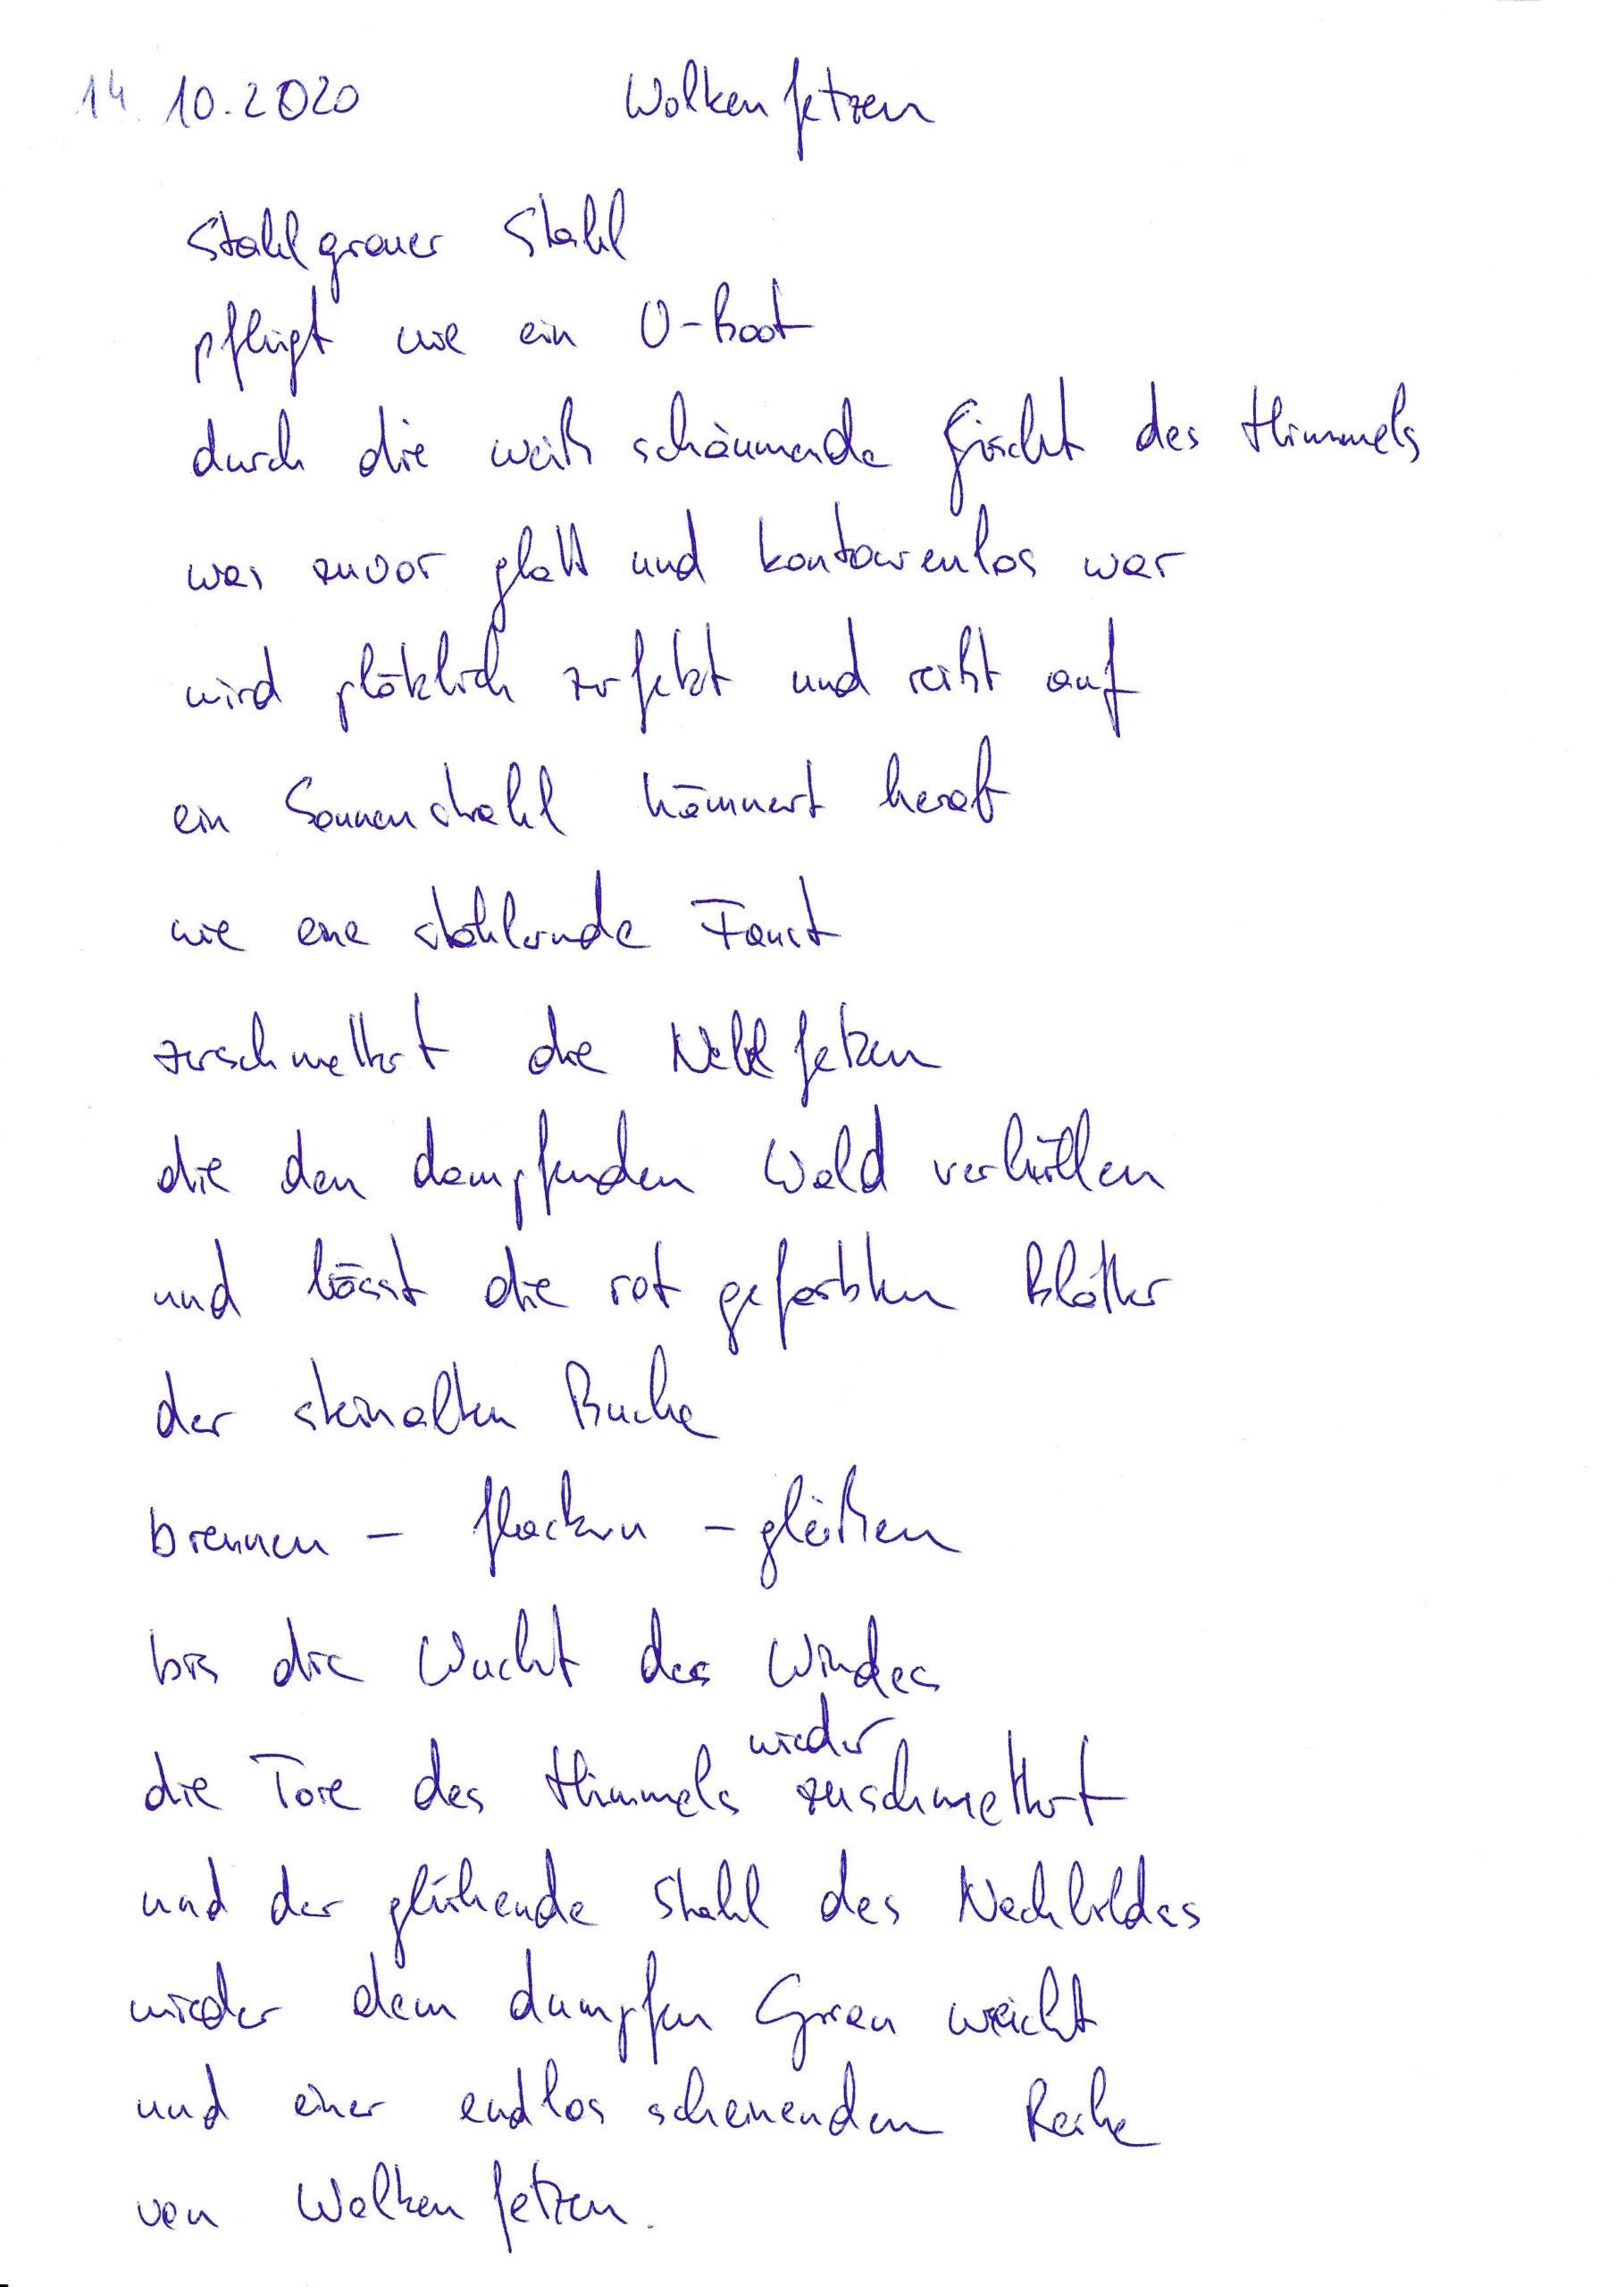 14.10.2020 Wolkenfetzen
Stahlgrauer Stahl
pflügt wie ein U-Boot
durch die weiß schäumende Gischt des Himmels
was zuvor glatt und konturenlos war
wird plötzlich zerfetzt und reißt auf
ein Sonnenstrahl hämmert herab
wie eine stählernde Faust
zerschmettert die Nebelfetzen
die den dampfenden Wald verhüllen
und lässt die rot gefärbten Blätter
der steinalten Buche
brennen – flackern – gleißen
bis die Wucht des Windes
die Tore des Himmels wieder zuschmettert
und der glühende Stahl des Nachbildes
wieder dem dumpfen Grau weicht
und einer endlos scheinenden Reihe
von Wolkenfetzen.